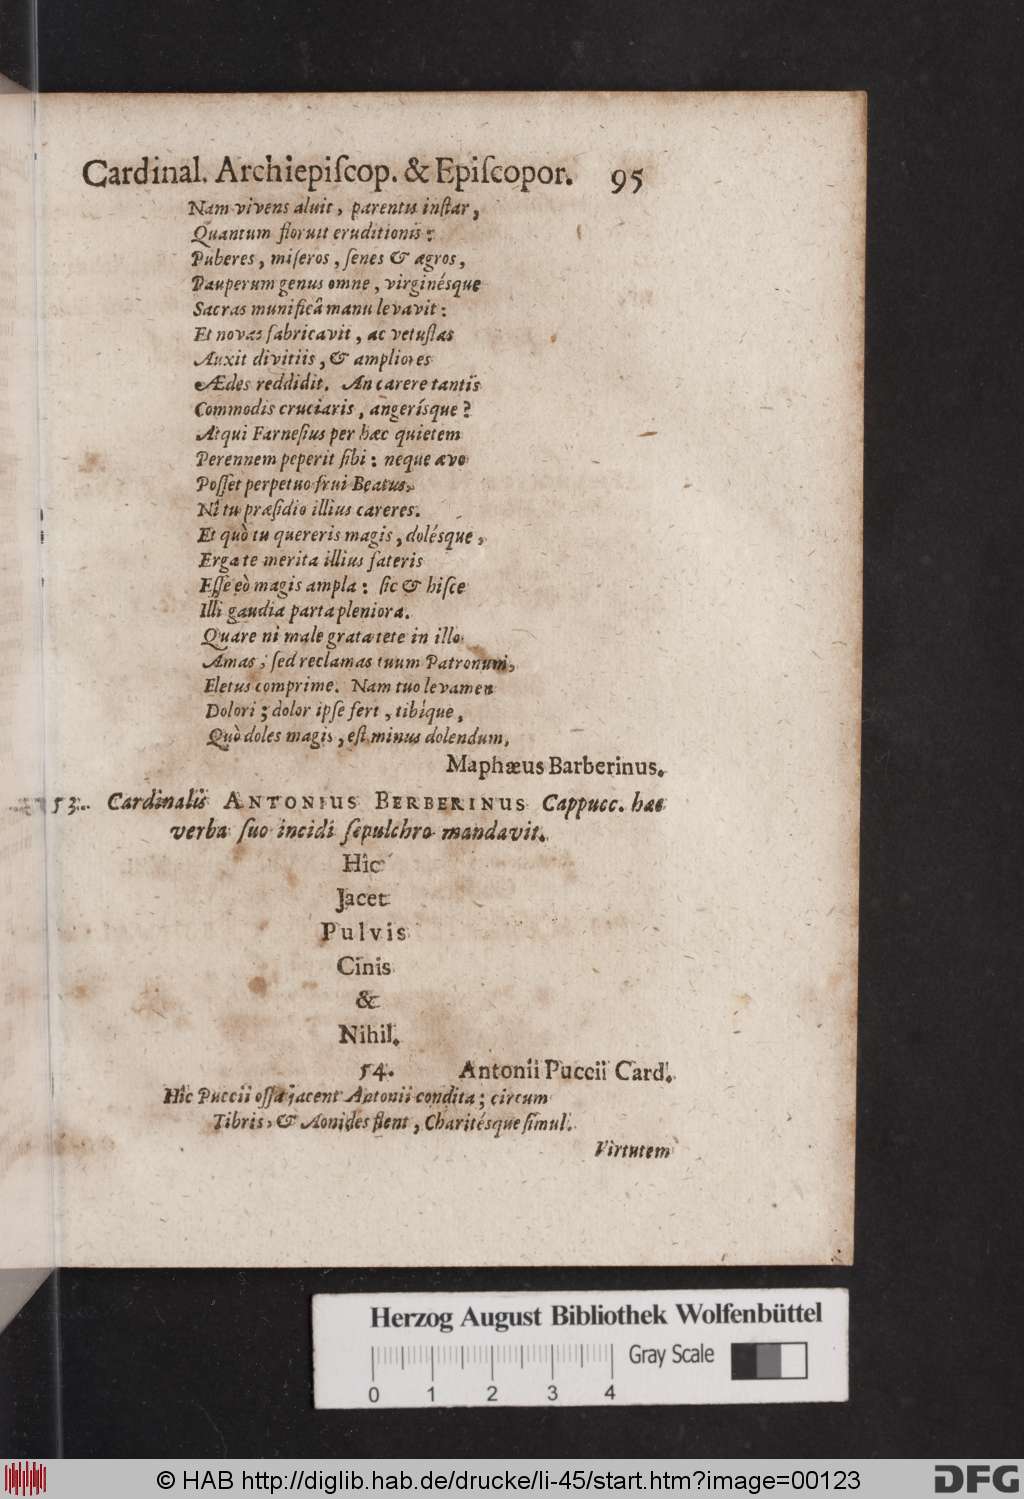 Cardinal. Archiepiſcop. & Epiſcopor. 95
Nam vivens aluit, parentis inſtar,
Quantum floruit eruditionis:
Puberes, miſeros, ſenes & ægros,
Pauperum genus omne, virginésque
Sacras munificâ manu levavit:
Et novas fabricavit, ac vetuſtas
Auxit divitiis, & ampliores
Ædes reddidit. An carere tantis
Commodis cruciaris, angerísque?
Atqui Farneſius per hæc quietem
Perennem peperit ſibi: neque ævo
Poſſet perpetuo frui Beatus,
Nî tu præſidio illius careres.
Et quò tu quereris magis, dolésque,
Erga te merita illius fateris
Eſſe eò magis ampla: ſic & hiſce
Illi gaudia parta pleniora.
Quare ni male grata tete in illo
Amas; ſed reclamas tuum Patronum,
Fletus comprime. Nam tuo levamen
Dolori; dolor ipſe fert, tibíque,
Quò doles magis, eſt minus dolendum.
Maphæus Barberinus.
53. Cardinalis ANTONIUS BERBERINUS Cappucc. hæc
verba ſuo incidi ſepulchro mandavit.
Hîc
Jacet
Pulvis
Cinis
&
Nihil.
54. Antonii Puccii Card.
Hîc Puccii oſſa jacent Antonii condita; circum
Tibris, & Aonides flent, Charitésque ſimul.
Virtutem
Herzog August Bibliothek Wolfenbüttel
Gray Scale
0 1 2 3 4
© HAB http://diglib.hab.de/drucke/li-45/start.htm?image=00123
DFG